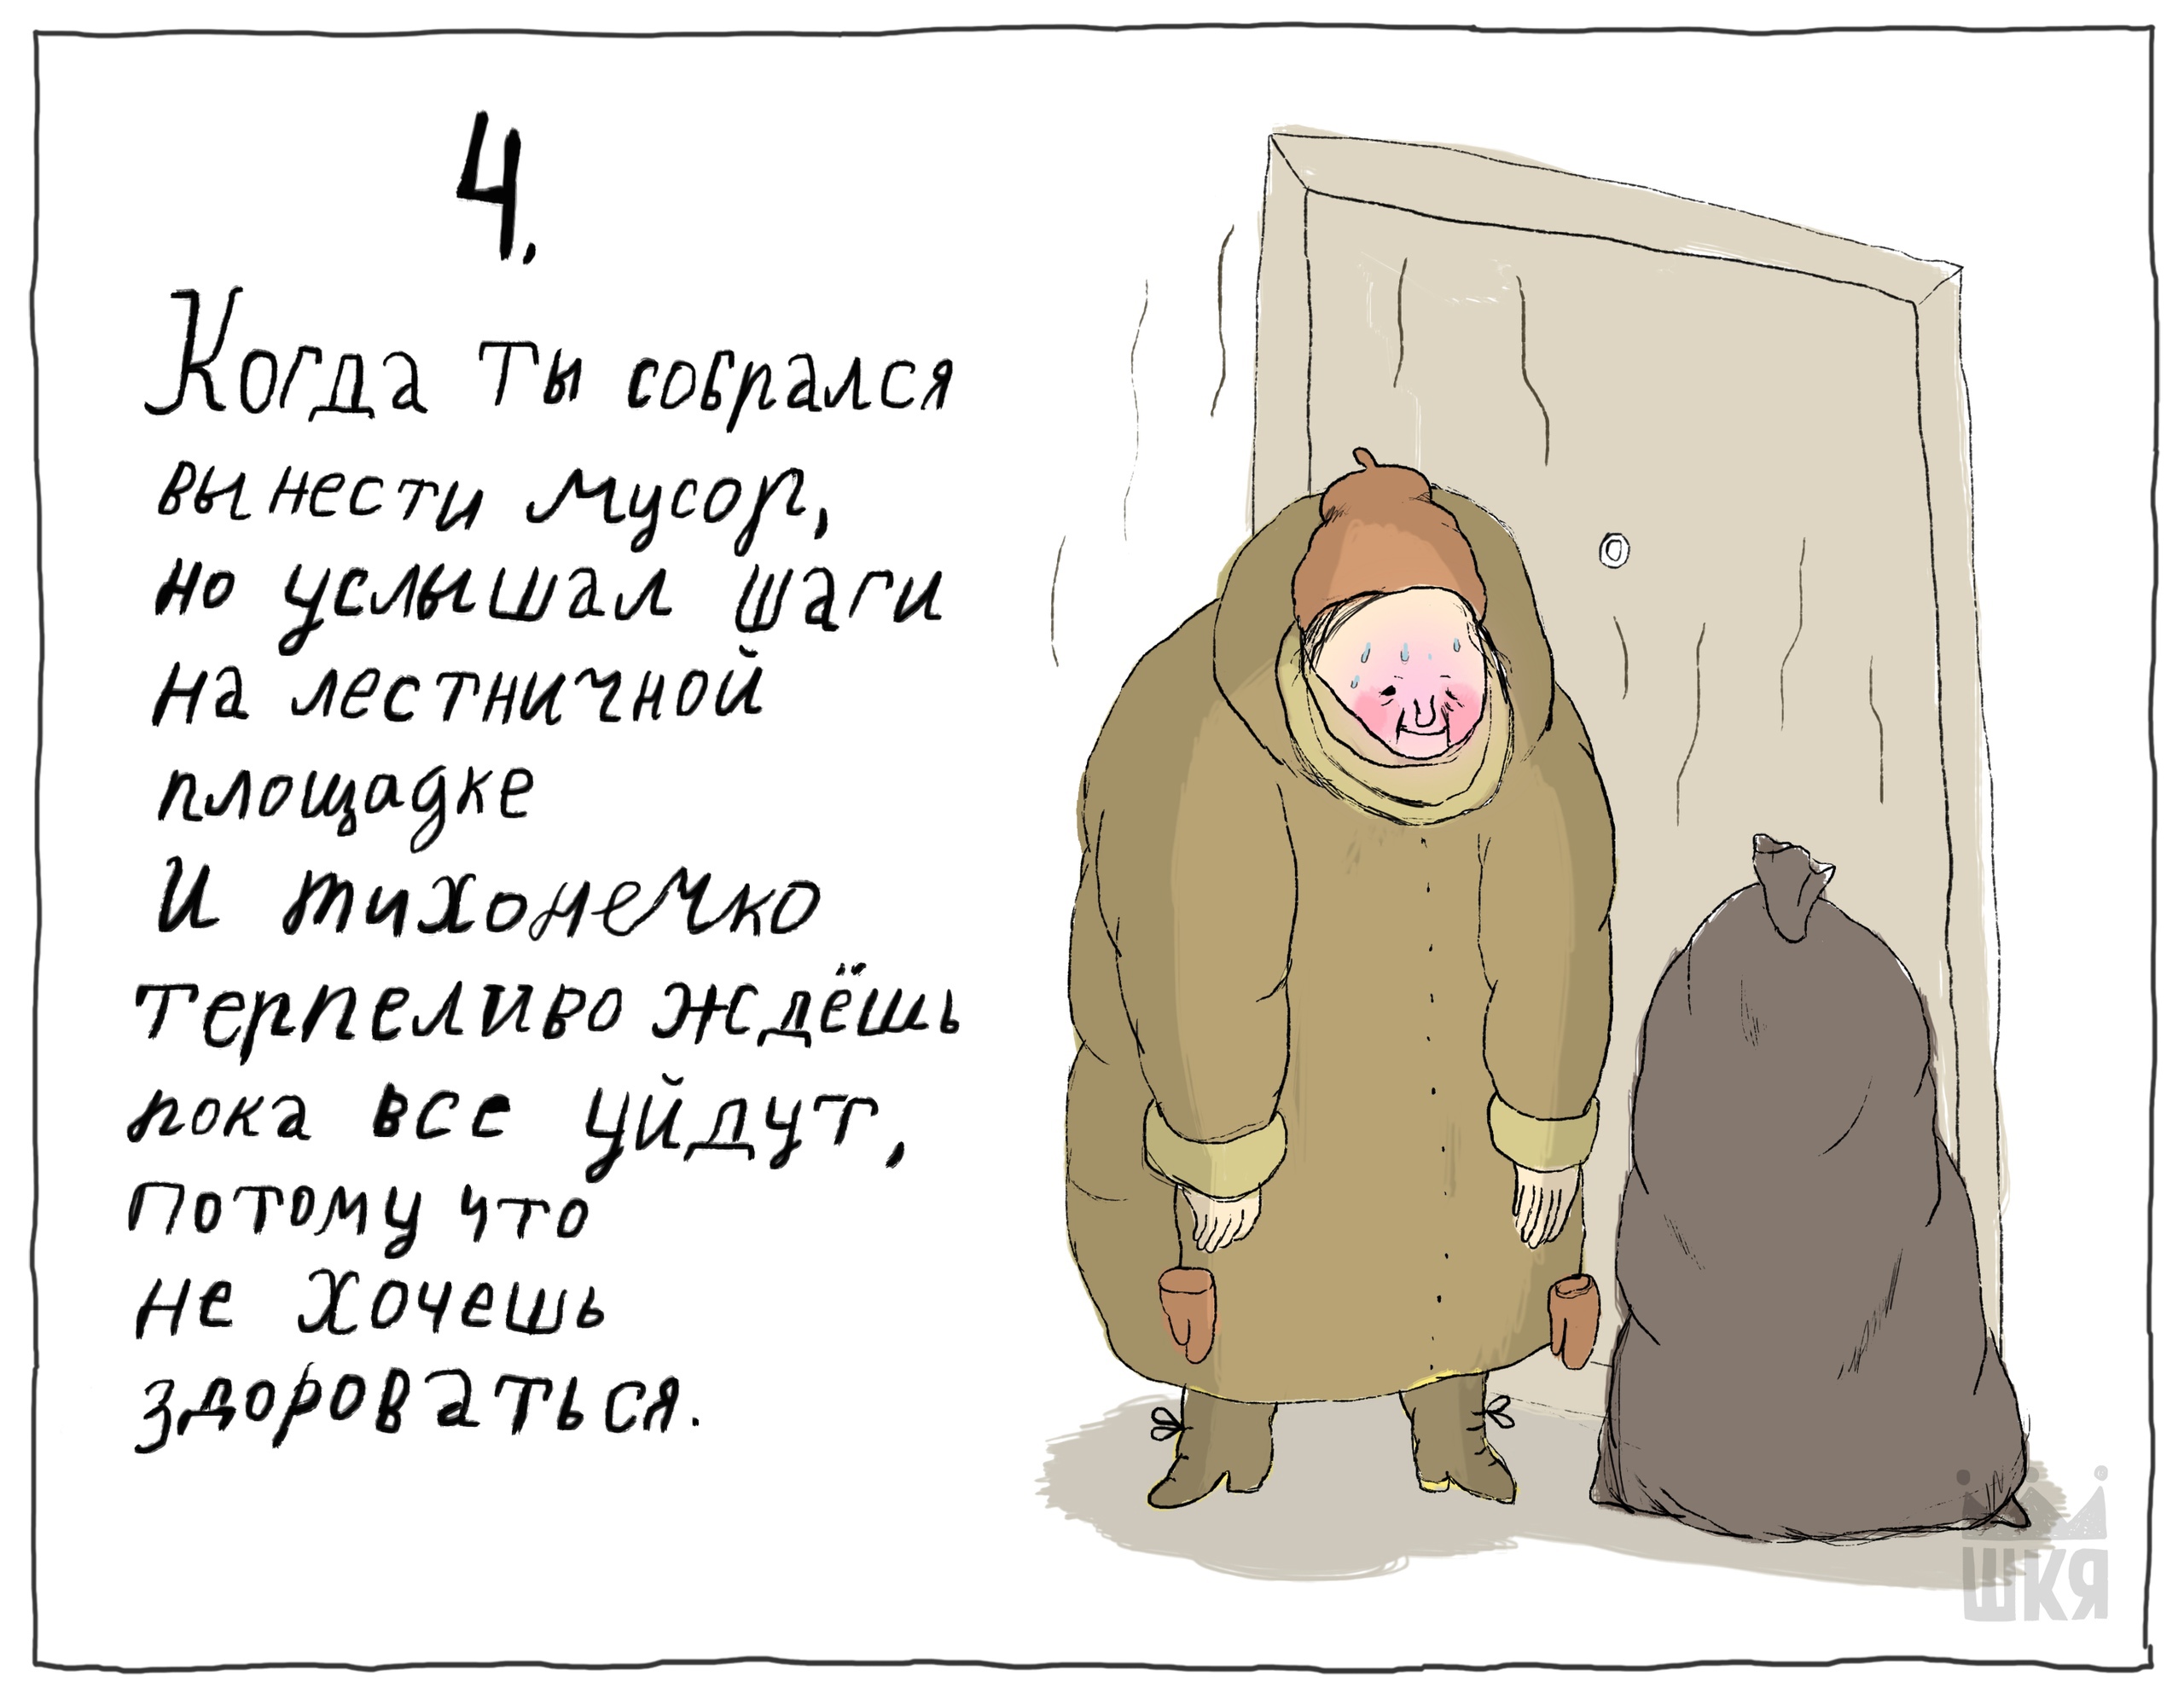 4.
Когда ты собрался
вынести мусор,
но услышал шаги
на лестничной
площадке
и тихонечко
терпеливо ждёшь
пока все уйдут,
потому что
не хочешь
здороваться.
ШКЯ